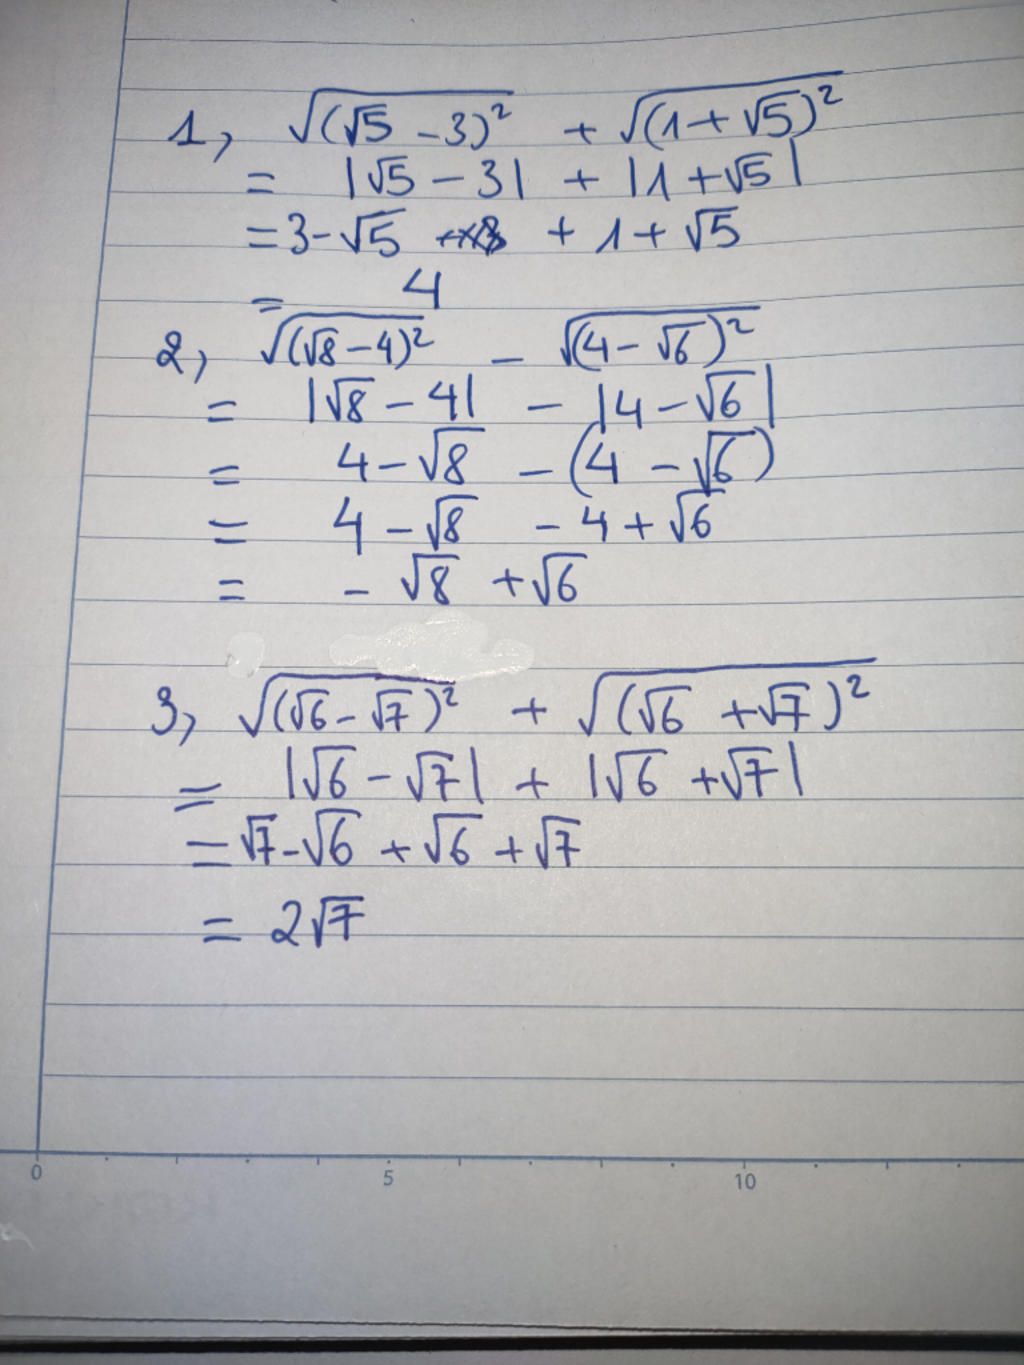 1, √(√5 - 3)² + √(1 + √5)²
= |√5 - 3| + |1 + √5|
= 3 - √5 + 1 + √5
= 4
2, √(√8 - 4)² - √(4 - √6)²
= |√8 - 4| - |4 - √6|
= 4 - √8 - (4 - √6)
= 4 - √8 - 4 + √6
= - √8 + √6
3, √(√6 - √7)² + √(√6 + √7)²
= |√6 - √7| + |√6 + √7|
= √7 - √6 + √6 + √7
= 2√7
0 5 10